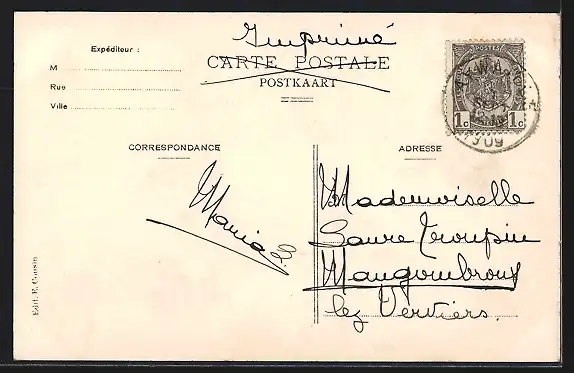 Imprimé
Expéditeur :
M
Rue
Ville
CARTE POSTALE
POSTKAART
POSTES
1c 1c
1909
CORRESPONDANCE
ADRESSE
Maria
Mademoiselle
Laure Troupin
Mangombroux
lez Verviers.
Edit. E. Cousin